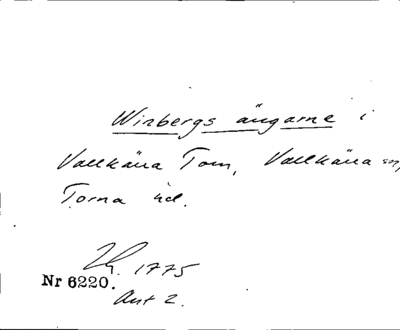 Winbergs ängarne i
Vallkära Tom, Vallkära sn,
Torna hd.
1775
Nr 6220.
Akt 2.